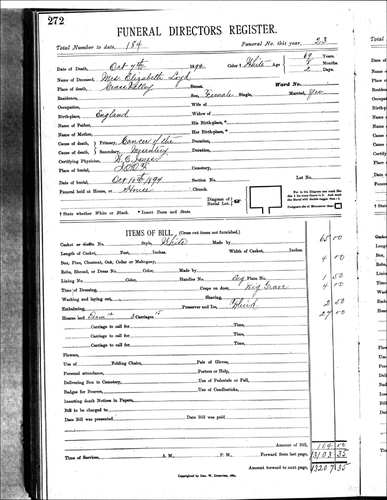 272
FUNERAL DIRECTORS REGISTER.
Total Number to date, 184 Funeral No. this year, 23
Date of Death, Oct 7th 1894 Color † White Age 69 Years.
8 Months
2 Days.
Name of Deceased, Mrs Elizabeth Loyd
Place of death, Grass Valley Street Ward No.
Residence, Sex, Female Single, Married, Yes
Occupation, Wife of
Birth-place, England Widow of
Name of Father, His Birth-place, *
Name of Mother, Her Birth-place, *
Cause of death, Primary, Cancer of the Duration,
Cause of death, Secondary, Duration,
Certifying Physician,
Place of burial, I.O.O.F. Cemetery,
Date of burial, Oct 10th 1894 Section No. Lot No.
Funeral held at Home, or House Church
Diagram of Burial Lot.
† State whether White or Black. * Insert Town and State.
ITEMS OF BILL, (Cross out items not furnished.)
Casket or Coffin No. Style, White Made by 65 00
Length of Casket, Feet, Inches. Width of Casket, Inches.
Box, Pine, Chestnut, Oak, Cedar or Mahogany, 4 00
Robe, Shroud, or Dress No. Color, Made by
Lining No. Color, Handles No. Plate No. 1 50
Time of Dressing, Crape on door, Grave 4 00
Washing and laying out, Shaving,
Embalming, Preserver and Ice, Fluid 2 50
Hearse and Carriages 27 00
Carriage to call for Time,
Carriage to call for Time,
Carriage to call for Time,
Carriage to call for Time,
Flowers,
Use of Folding Chairs, Pair of Gloves,
Personal attendance, Porters or Help,
Delivering Box to Cemetery, Use of Pedestals or Pall,
Badges for Bearers, Use of Candlesticks,
Inserting death Notices in Papers,
Bill to be charged to
Date Bill was presented Date Bill was paid
Amount of Bill, 104 00
Time of Services, A. M., P. M., Forward from last page, 13103 35
Amount forward to next page, 13207 35